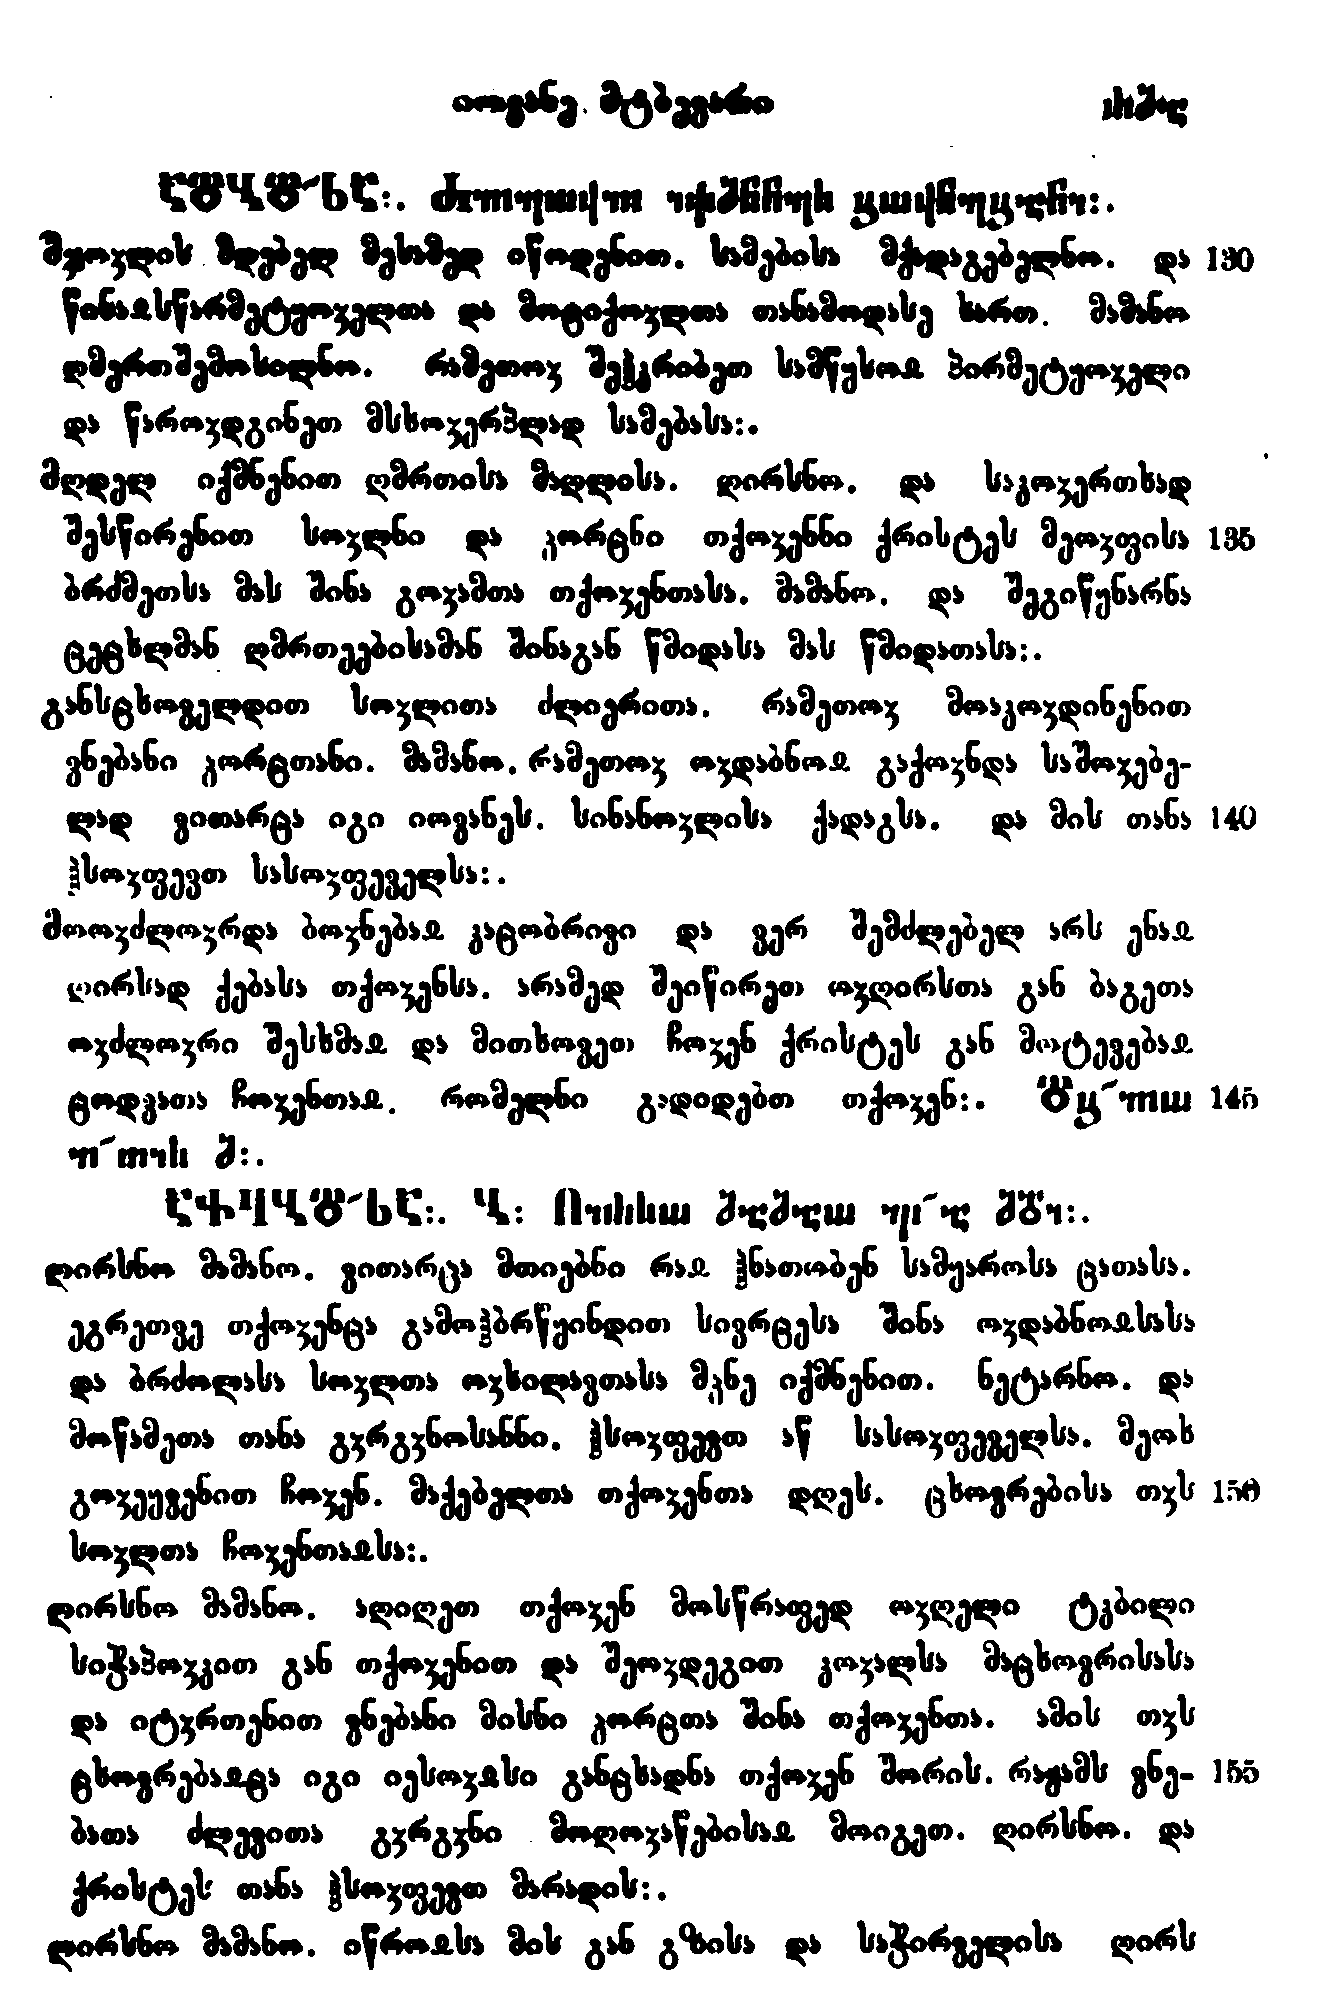 იოვანე მტბევარი
მყოჳლის მდებელ მესამედ იწოდენით. სამებისა მქადაგებელნო. და 130
წინაჲსწარმეტყოჳელთა და მოციქოჳლთა თანამოდასე ხართ. მამანო
ღმერთშემოსილნო. რამეთოჳ შეჰკრიბეთ სამწყსოჲ პირმეტყოჳელი
და წაროჳდგინეთ მსხოჳერპლად სამებასა:.
მღდელ იქმნენით ღმრთისა მაღლისა. ღირსნო. და საკოჳერთხად
შესწირენით სოჳლნი და კორცნი თქოჳენნი ქრისტეს მეოჳფისა 135
ბრძმეთსა მას შინა გოჳამთა თქოჳენთასა. მამანო. და შეგიწყნარნა
ცეცხლმან ღმრთეებისამან შინაგან წმიდასა მას წმიდათასა:.
განსცხოველდით სოჳლითა ძლიერითა. რამეთოჳ მოაკოჳდინენით
ვნებანი კორცთანი. მამანო. რამეთოჳ ოჳდაბნოჲ გაქოჳნდა საშოჳებე-
ლად ვითარცა იგი იოვანეს. სინანოჳლისა ქადაგსა. და მის თანა 140
ჰსოჳფევთ სასოჳფეველსა:.
მოოჳძლოჳრდა ბოჳნებაჲ კაცობრივი და ვერ შემძლებელ არს ენაჲ
ღირსად ქებასა თქოჳენსა. არამედ შეიწირეთ ოჳღირსთა გან ბაგეთა
ოჳძლოჳრი შესხმაჲ და მითხოვეთ ჩოჳენ ქრისტეს გან მოტევებაჲ
ცოდვათა ჩოჳენთაჲ. რომელნი გადიდებთ თქოჳენ:. 145
ღირსნო მამანო. ვითარცა მთიებნი რაჲ ჰნათობენ სამყაროსა ცათასა.
ეგრეთვე თქოჳენცა გამოჰბრწყინდით სივრცესა შინა ოჳდაბნოჲსასა
და ბრძოლასა სოჳლთა ოჳხილავთასა მკნე იქმნენით. ნეტარნო. და
მოწამეთა თანა გჳრგჳნოსანნი. ჰსოჳფევთ აწ სასოჳფეველსა. მეოხ
გოჳეყვენით ჩოჳენ. მაქებელთა თქოჳენთა დღეს. ცხოვრებისა თჳს 150
სოჳლთა ჩოჳენთაჲსა:.
ღირსნო მამანო. აღიღეთ თქოჳენ მოსწრაფედ ოჳღელი ტკბილი
სიჭაპოჳკით გან თქოჳენით და შეოჳდეგით კოჳალსა მაცხოვრისასა
და იტჳრთენით ვნებანი მისნი კორცთა შინა თქოჳენთა. ამის თჳს
ცხოვრებაჲცა იგი იესოჳჲსი განცხადნა თქოჳენ შორის. რაჟამს ვნე- 155
ბათა ძლევითა გჳრგჳნი მოღოჳაწებისაჲ მოიგეთ. ღირსნო. და
ქრისტეს თანა ჰსოჳფევთ მარადის:.
ღირსნო მამანო. იწროჲსა მის გან გზისა და საჭირველისა ღირს